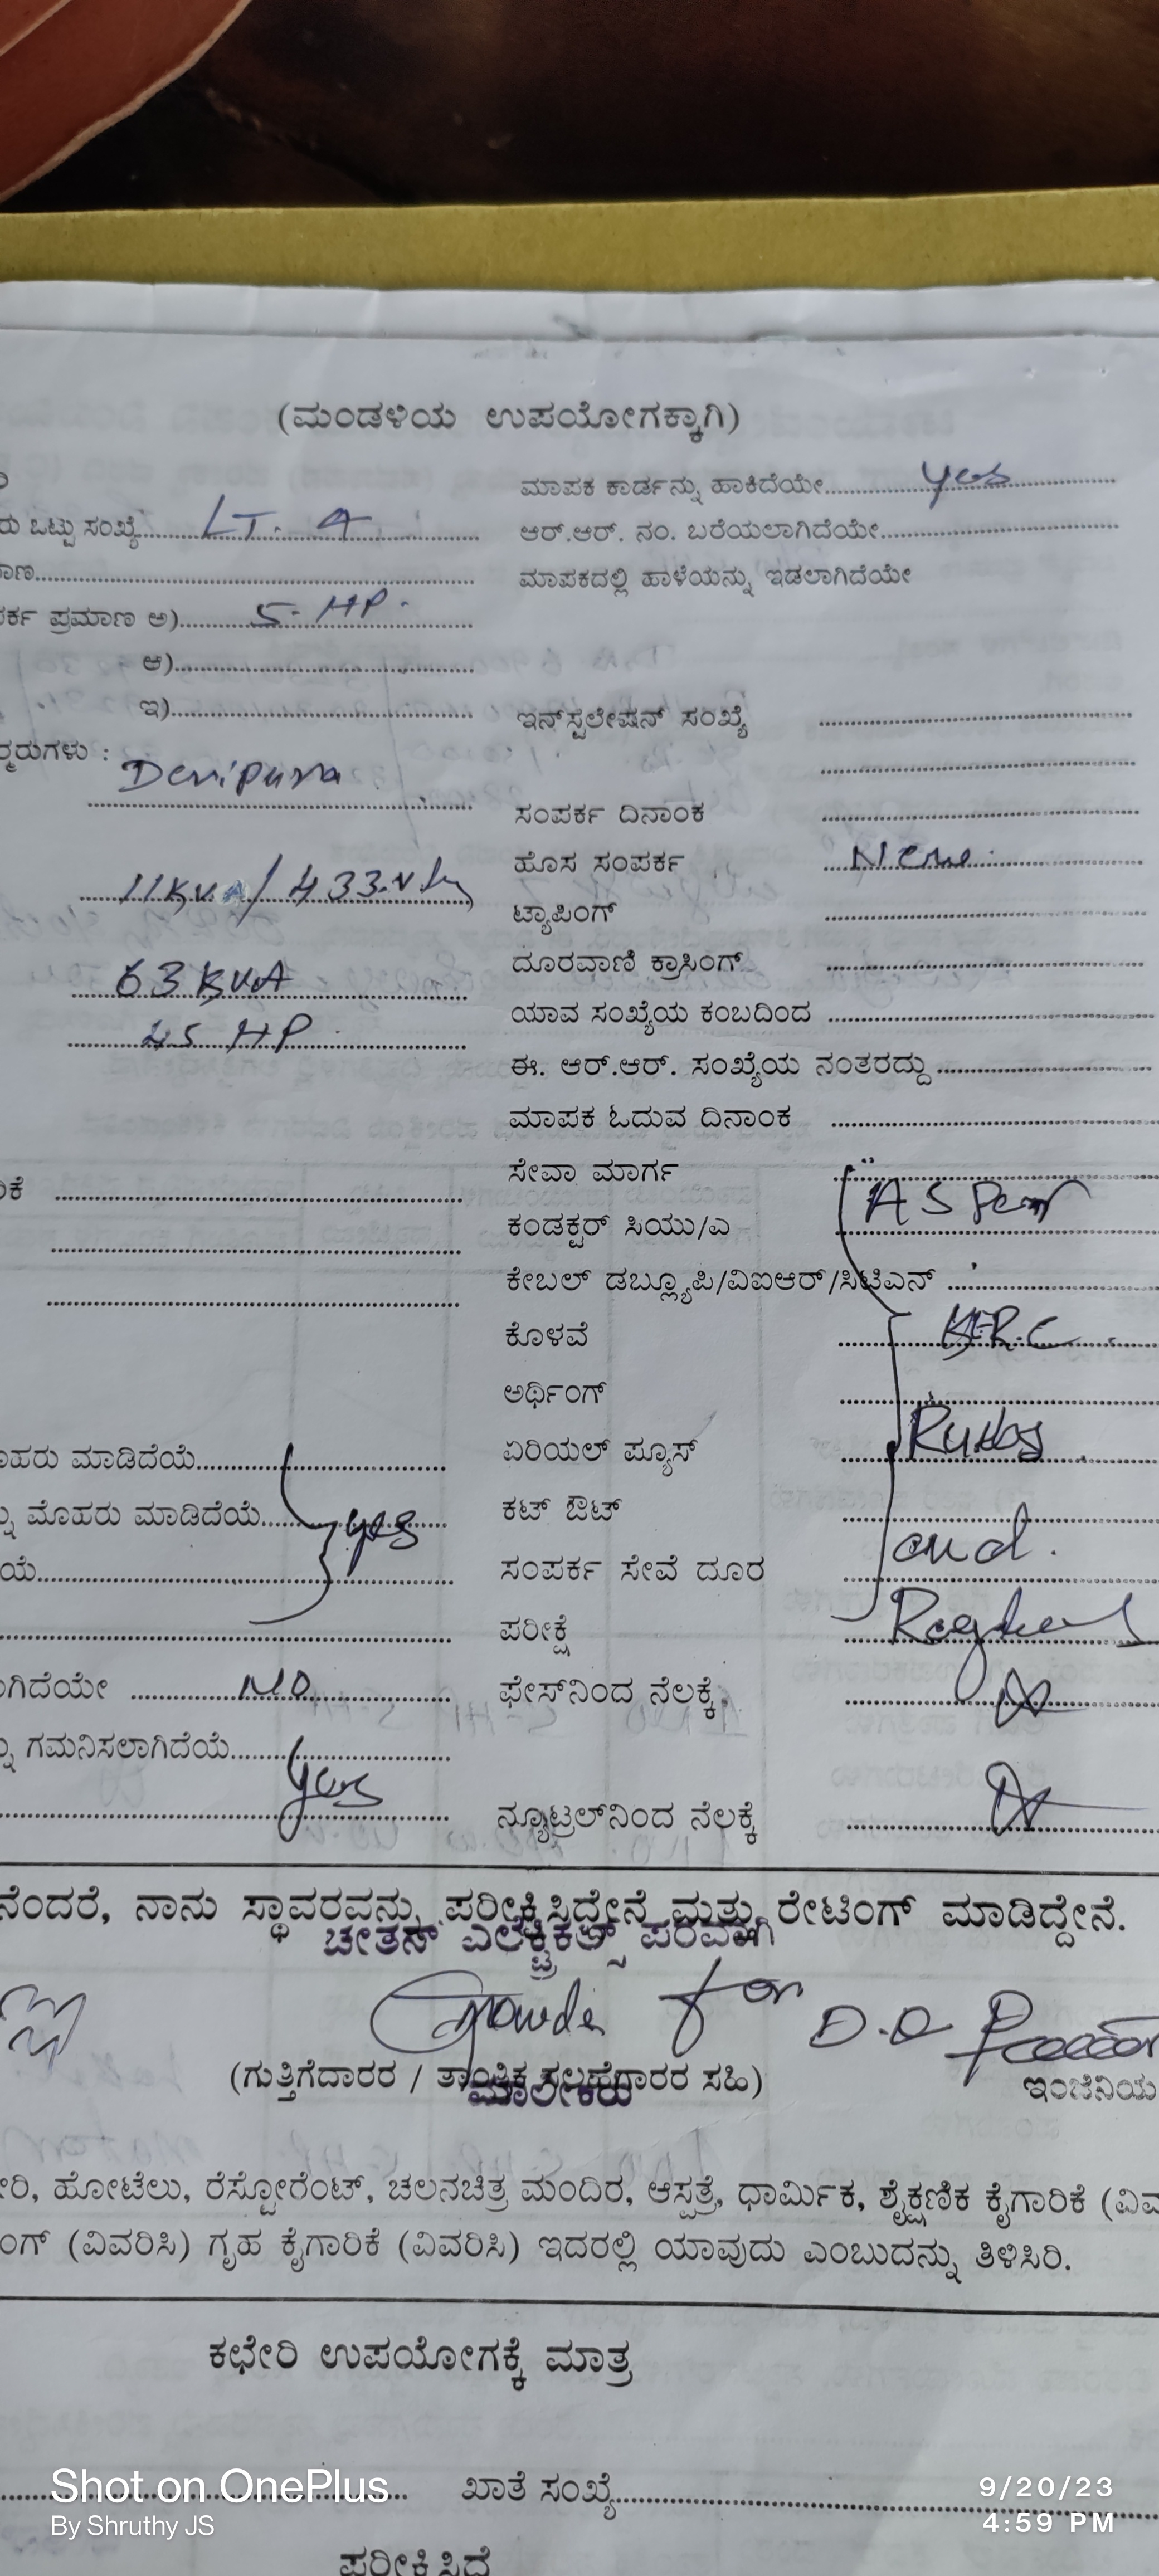 (ಮಂಡಳಿಯ ಉಪಯೋಗಕ್ಕಾಗಿ)
ಮಾಪಕ ಕಾರ್ಡನ್ನು ಹಾಕಿದೆಯೇ.......... yes
ರು ಒಟ್ಟು ಸಂಖ್ಯೆ.......... LT. 4
ಆರ್.ಆರ್. ನಂ. ಬರೆಯಲಾಗಿದೆಯೇ..........
ಮಾಪಕದಲ್ಲಿ ಹಾಳೆಯನ್ನು ಇಡಲಾಗಿದೆಯೇ
ರ್ಕ ಪ್ರಮಾಣ ಅ).......... 5- HP.
ಆ)..........
ಇ)..........
ಇನ್‌ಸ್ಟಲೇಷನ್ ಸಂಖ್ಯೆ ..........
ರ್‍ಮರುಗಳು :
Devipura
ಸಂಪರ್ಕ ದಿನಾಂಕ ..........
ಹೊಸ ಸಂಪರ್ಕ .......... New.
11KVA/433.v
ಟ್ಯಾಪಿಂಗ್ ..........
ದೂರವಾಣಿ ಕ್ರಾಸಿಂಗ್ ..........
63 KVA
ಯಾವ ಸಂಖ್ಯೆಯ ಕಂಬದಿಂದ ..........
45 HP.
ಈ. ಆರ್.ಆರ್. ಸಂಖ್ಯೆಯ ನಂತರದ್ದು ..........
ಮಾಪಕ ಓದುವ ದಿನಾಂಕ ..........
ಸೇವಾ ಮಾರ್ಗ ..........
ಕಂಡಕ್ಟರ್ ಸಿಯು/ಎ .......... AS Per
ಕೇಬಲ್ ಡಬ್ಲ್ಯೂಪಿ/ವಿಐಆರ್/ಸಿಟಿಎನ್ ..........
ಕೊಳವೆ ..........
ಅರ್ಥಿಂಗ್ ..........
ಹರು ಮಾಡಿದೆಯೆ..........
ಏರಿಯಲ್ ಫ್ಯೂಸ್ .......... Rules
ನ್ನು ಮೊಹರು ಮಾಡಿದೆಯೆ.......... yes
ಕಟ್ ಔಟ್ ..........
and.
ಯೆ..........
ಸಂಪರ್ಕ ಸೇವೆ ದೂರ ..........
ಪರೀಕ್ಷೆ ..........
ಗಿದೆಯೇ .......... NO
ಫೇಸ್‌ನಿಂದ ನೆಲಕ್ಕೆ ..........
ನ್ನು ಗಮನಿಸಲಾಗಿದೆಯೆ..........
yes
ನ್ಯೂಟ್ರಲ್‌ನಿಂದ ನೆಲಕ್ಕೆ ..........
ನೆಂದರೆ, ನಾನು ಸ್ಥಾವರವನ್ನು ಪರೀಕ್ಷಿಸಿದ್ದೇನೆ ಮತ್ತು ರೇಟಿಂಗ್ ಮಾಡಿದ್ದೇನೆ.
ಚೇತನ್ ಎಲೆಕ್ಟ್ರಿಕಲ್ಸ್ ಪರವಾಗಿ
Gowda for
(ಗುತ್ತಿಗೆದಾರರ / ತಾಂತ್ರಿಕ ಸಲಹೆಗಾರರ ಸಹಿ)
ಇಂಜಿನಿಯ
ಮಾಲೀಕರು
ರಿ, ಹೋಟೆಲು, ರೆಸ್ಟೋರೆಂಟ್, ಚಲನಚಿತ್ರ ಮಂದಿರ, ಆಸ್ಪತ್ರೆ, ಧಾರ್ಮಿಕ, ಶೈಕ್ಷಣಿಕ ಕೈಗಾರಿಕೆ (ವಿವ
ಂಗ್ (ವಿವರಿಸಿ) ಗೃಹ ಕೈಗಾರಿಕೆ (ವಿವರಿಸಿ) ಇದರಲ್ಲಿ ಯಾವುದು ಎಂಬುದನ್ನು ತಿಳಿಸಿರಿ.
ಕಛೇರಿ ಉಪಯೋಗಕ್ಕೆ ಮಾತ್ರ
ಖಾತೆ ಸಂಖ್ಯೆ..........
ಪರೀಕ್ಷಿಸಿದೆ
Shot on OnePlus
By Shruthy JS
9/20/23
4:59 PM